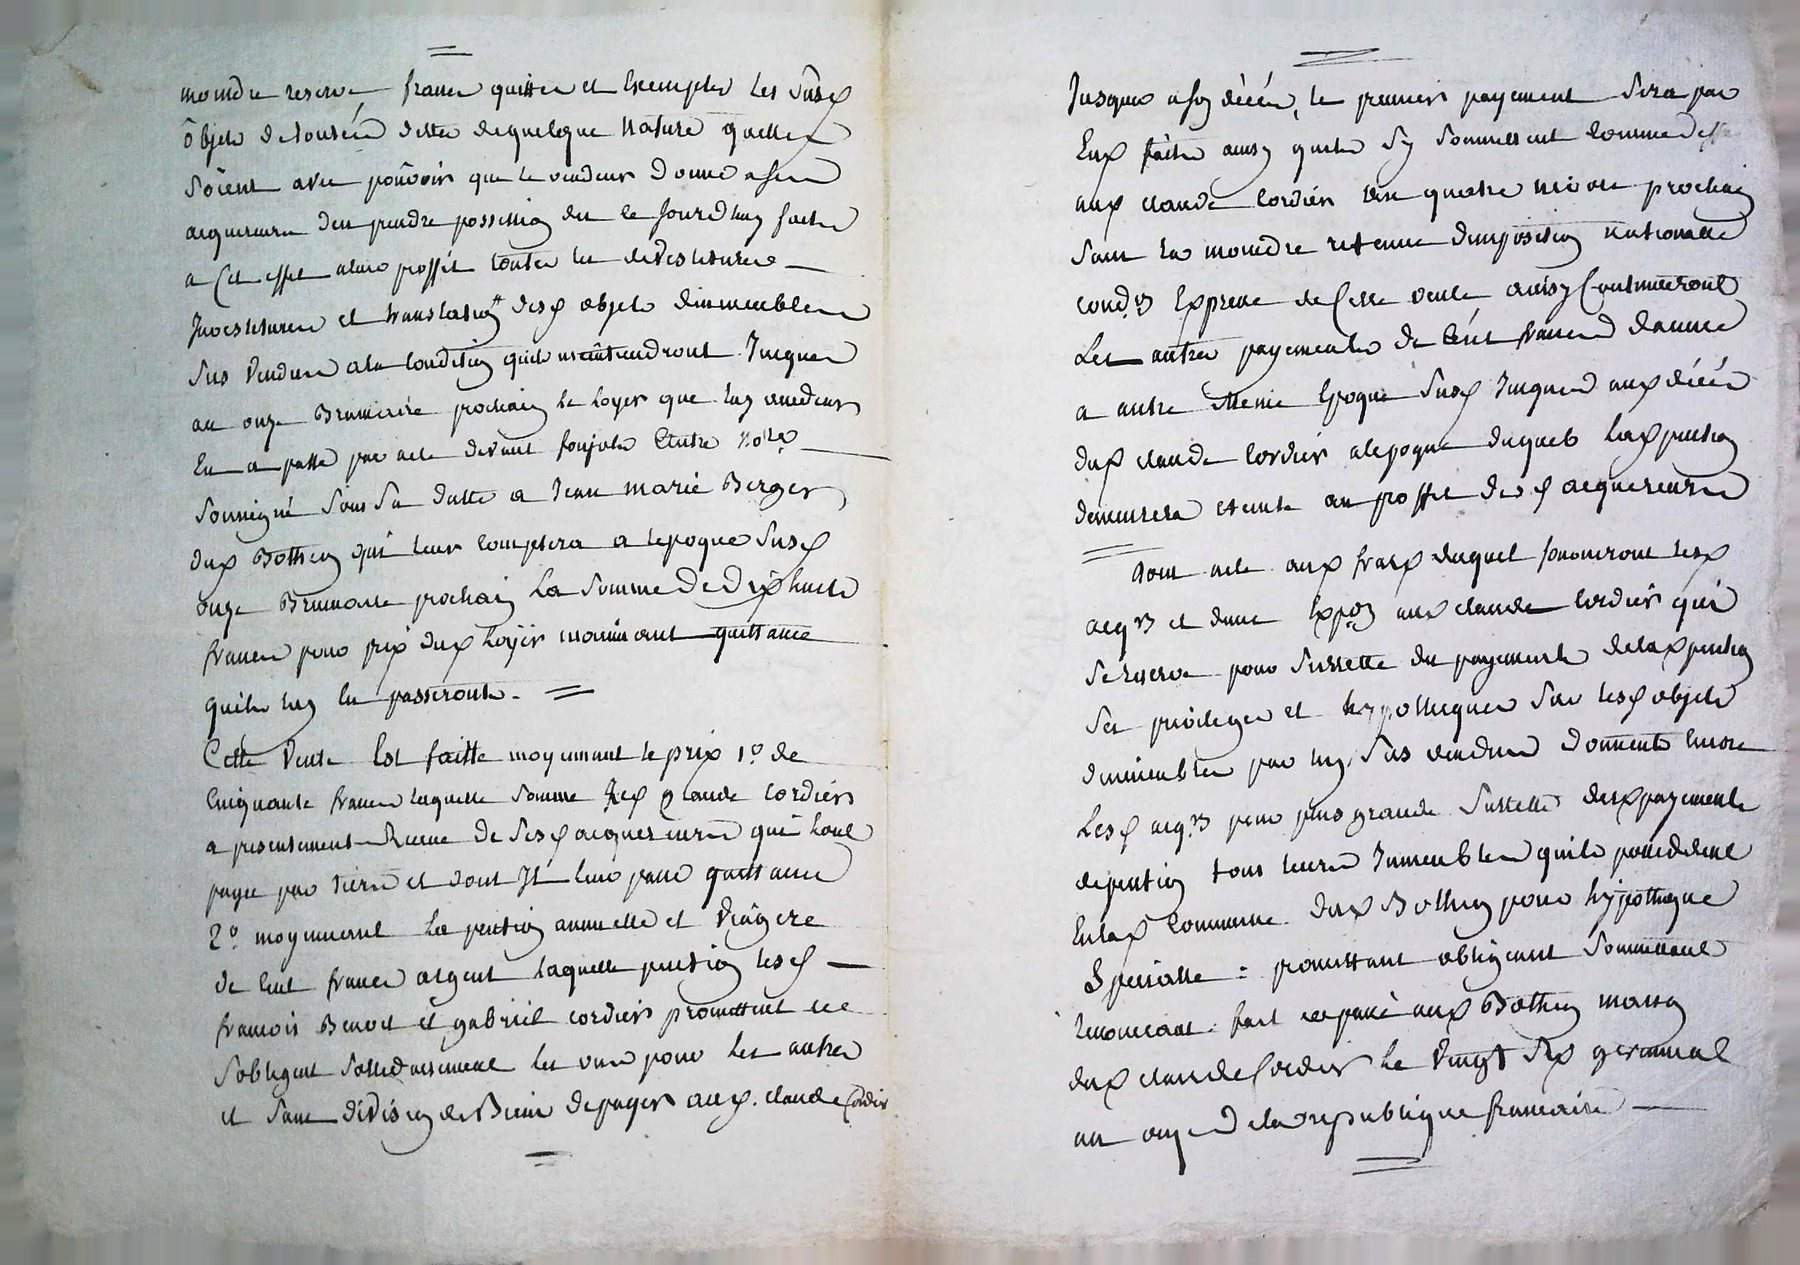 moindre reserve franc quitte et Exempter les susd
objets de toutes dettes de quelque Nature quelles
Soient avec pouvoir que le vendeur donne a ses
acquereurs den prendre possession des ce Jourdhuy faites
a Cet effet a leur proffit toutes les devestitures
Investitures et translation desd objets dimmeubles
sus Vendus a la Condition quils mentiendront Jusques
au onze Brumaire prochain le loyer que luy vendeur
En a passé par acte devant Notre
Soussigné Sous Sa datte a Jean marie Berger
dud Bothieu qui leur Comptera a lepoque Susd
onze Brumaire prochain La Somme de dix huit
francs pour prix dud loyer moyenant quittance
quils luy en passeront.
Cette Vente Est faitte moyennant le prix 1° de
Cinquante francs laquelle Somme led Claude Cordier
a presentement Recue de Sesd acquereurs qui lont
payée par tiers et dont Il leur passe quittance
2° moyennant La pention annuelle et Viagere
de Cent francs argent laquelle pention lesd
francois Benoit et gabriel Cordier promettent et
Sobligent Sollidairement les uns pour les autres
et Sans division de Biens de payer aud. Claude Cordier
Jusques a son décés, le premier payement Sera par
Eux faite ainsy quils Sy Soumettent Comme dessus
aud Claude Cordier Le quatre nivose prochain
Sans la moindre retenue dimposition nationalle
cond.on Expresse de Cette vente ainsy Continueront
Les autres payements de Cent francs dannée
a autre Meme Epoque Susd Jusques aud décés
dud Claude Cordier a lepoque duquel Lad pention
demeurera eteinte au proffit desd acquereurs
Dont acte aux fraix duquel fourniront lesd
acq.rs et dune Exp.on aud Claude Cordier qui
Se reserve pour Surette du payement de lad pention
Ses privileges et hypotheques Sur lesd objets
dimmeubles par luy Sus vendus donnent Encore
Lesd acq.rs pour plus grande Surette desd payements
de pention tous leurs Immeubles quils possedent
En lad Commune dud Bothieu pour hypotheque
Specialle = promettant obligeant Soumettant
renoncant. fait et passé aud Bothieu maison
dud Claude Cordier Le Vingt Six germinal
an onze de la republique francaise